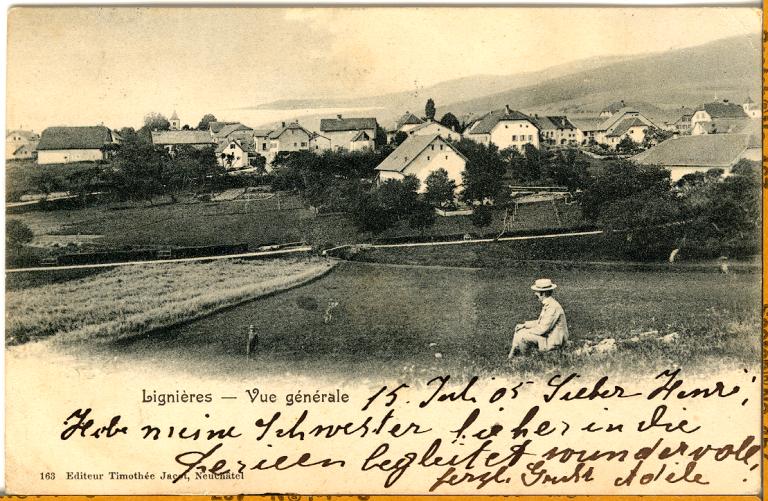 Lignières — Vue générale
15. Juli 05 Lieber Henri!
Habe meine Schwester hieher in die
Ferien begleitet wundervoll!
herzl. Gruss Adèle
163 Editeur Timothée Jacot, Neuchâtel